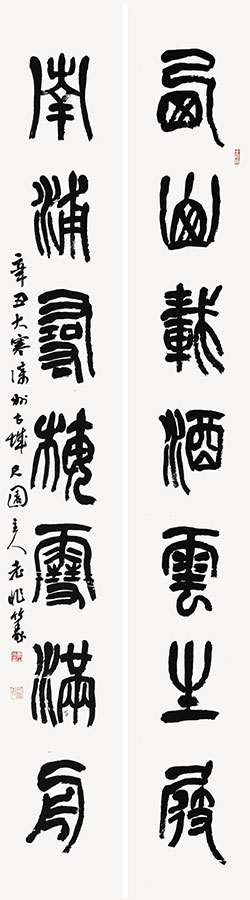 西山載酒雲生屐
南浦尋梅雪滿舟
辛丑大寒州古城尺園主人老篆